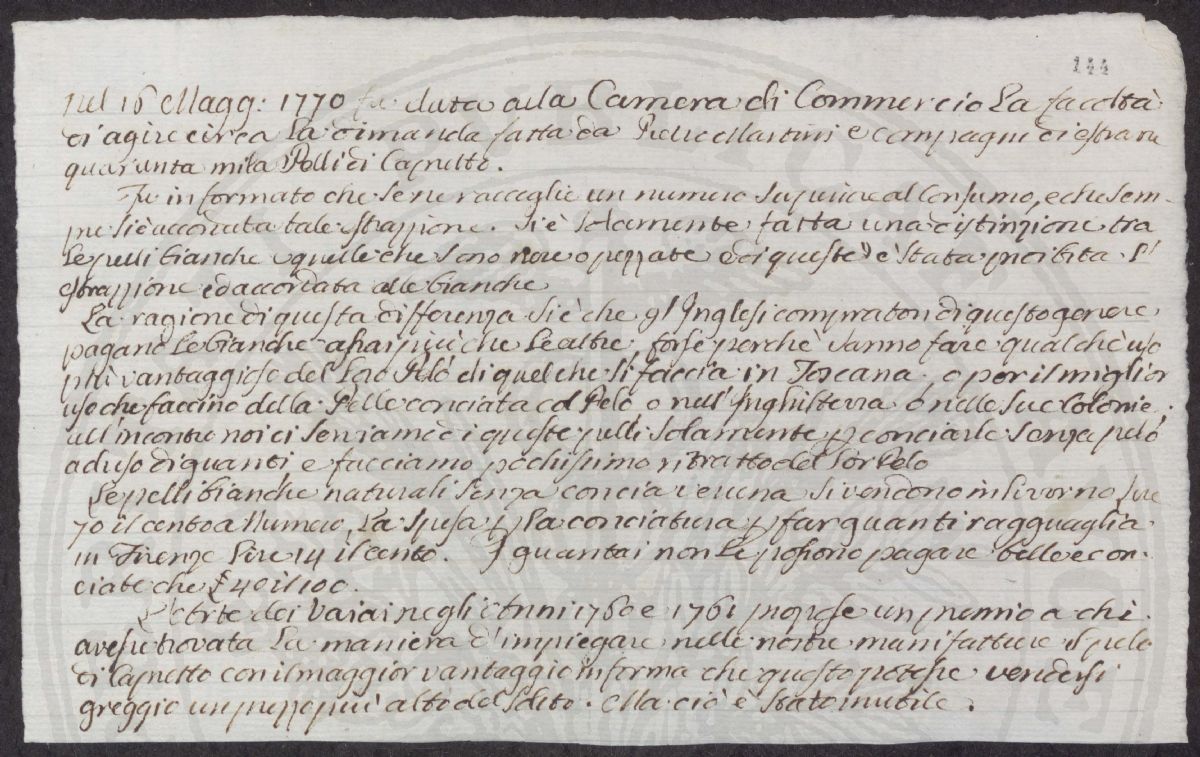 144
nel 16 Magg: 1770 fu data alla Camera di Commercio La facoltà
di agire circa La dimanda fatta da Pietro Martini e Compagni di estrarre
quaranta mila Pelli di Capretto.
Fu informato che se ne raccoglie un numero superiore al Consumo, e che sem-
pre si è accordata tale estrazzione. Si è solamente fatta una distinzione tra
Le pelli bianche e quelle che sono nere o pezzate e di queste è stata proibita l'
estrazzione ed accordata alle bianche
La ragione di questa differenza si è che gl'Inglesi compratori di questo genere
pagano Le bianche assai più che Le altre, forse perchè sanno fare qualche uso
più vantaggioso del Loro Pelo di quel che si faccia in Toscana, o per il miglior
uso che faccino della Pelle conciata col Pelo o nell'Inghilterra o nelle Sue Colonie.
all'incontro noi ci serviamo di queste pelli solamente p conciarle senza pelo
ad uso di guanti e facciamo pochissimo ritratto del Lor Pelo
Le pelli bianche naturali senza concia veruna si vendono in Livorno Lire
70 il cento a Numero, La spesa p La conciatura p far guanti ragguaglia
in Firenze Lire 14 il cento. I guantai non Le possono pagare belle e con-
ciate che £ 40 il 100.
L'Arte dei Vaiai negli Anni 1760 e 1761 propose un premio a chi
avesse trovata La maniera d'impiegare nelle nostre manifatture il pelo
di Capretto con il maggior vantaggio in forma che questo potesse vendersi
greggio un prezzo più alto del Solito. Ma ciò è stato inutile.